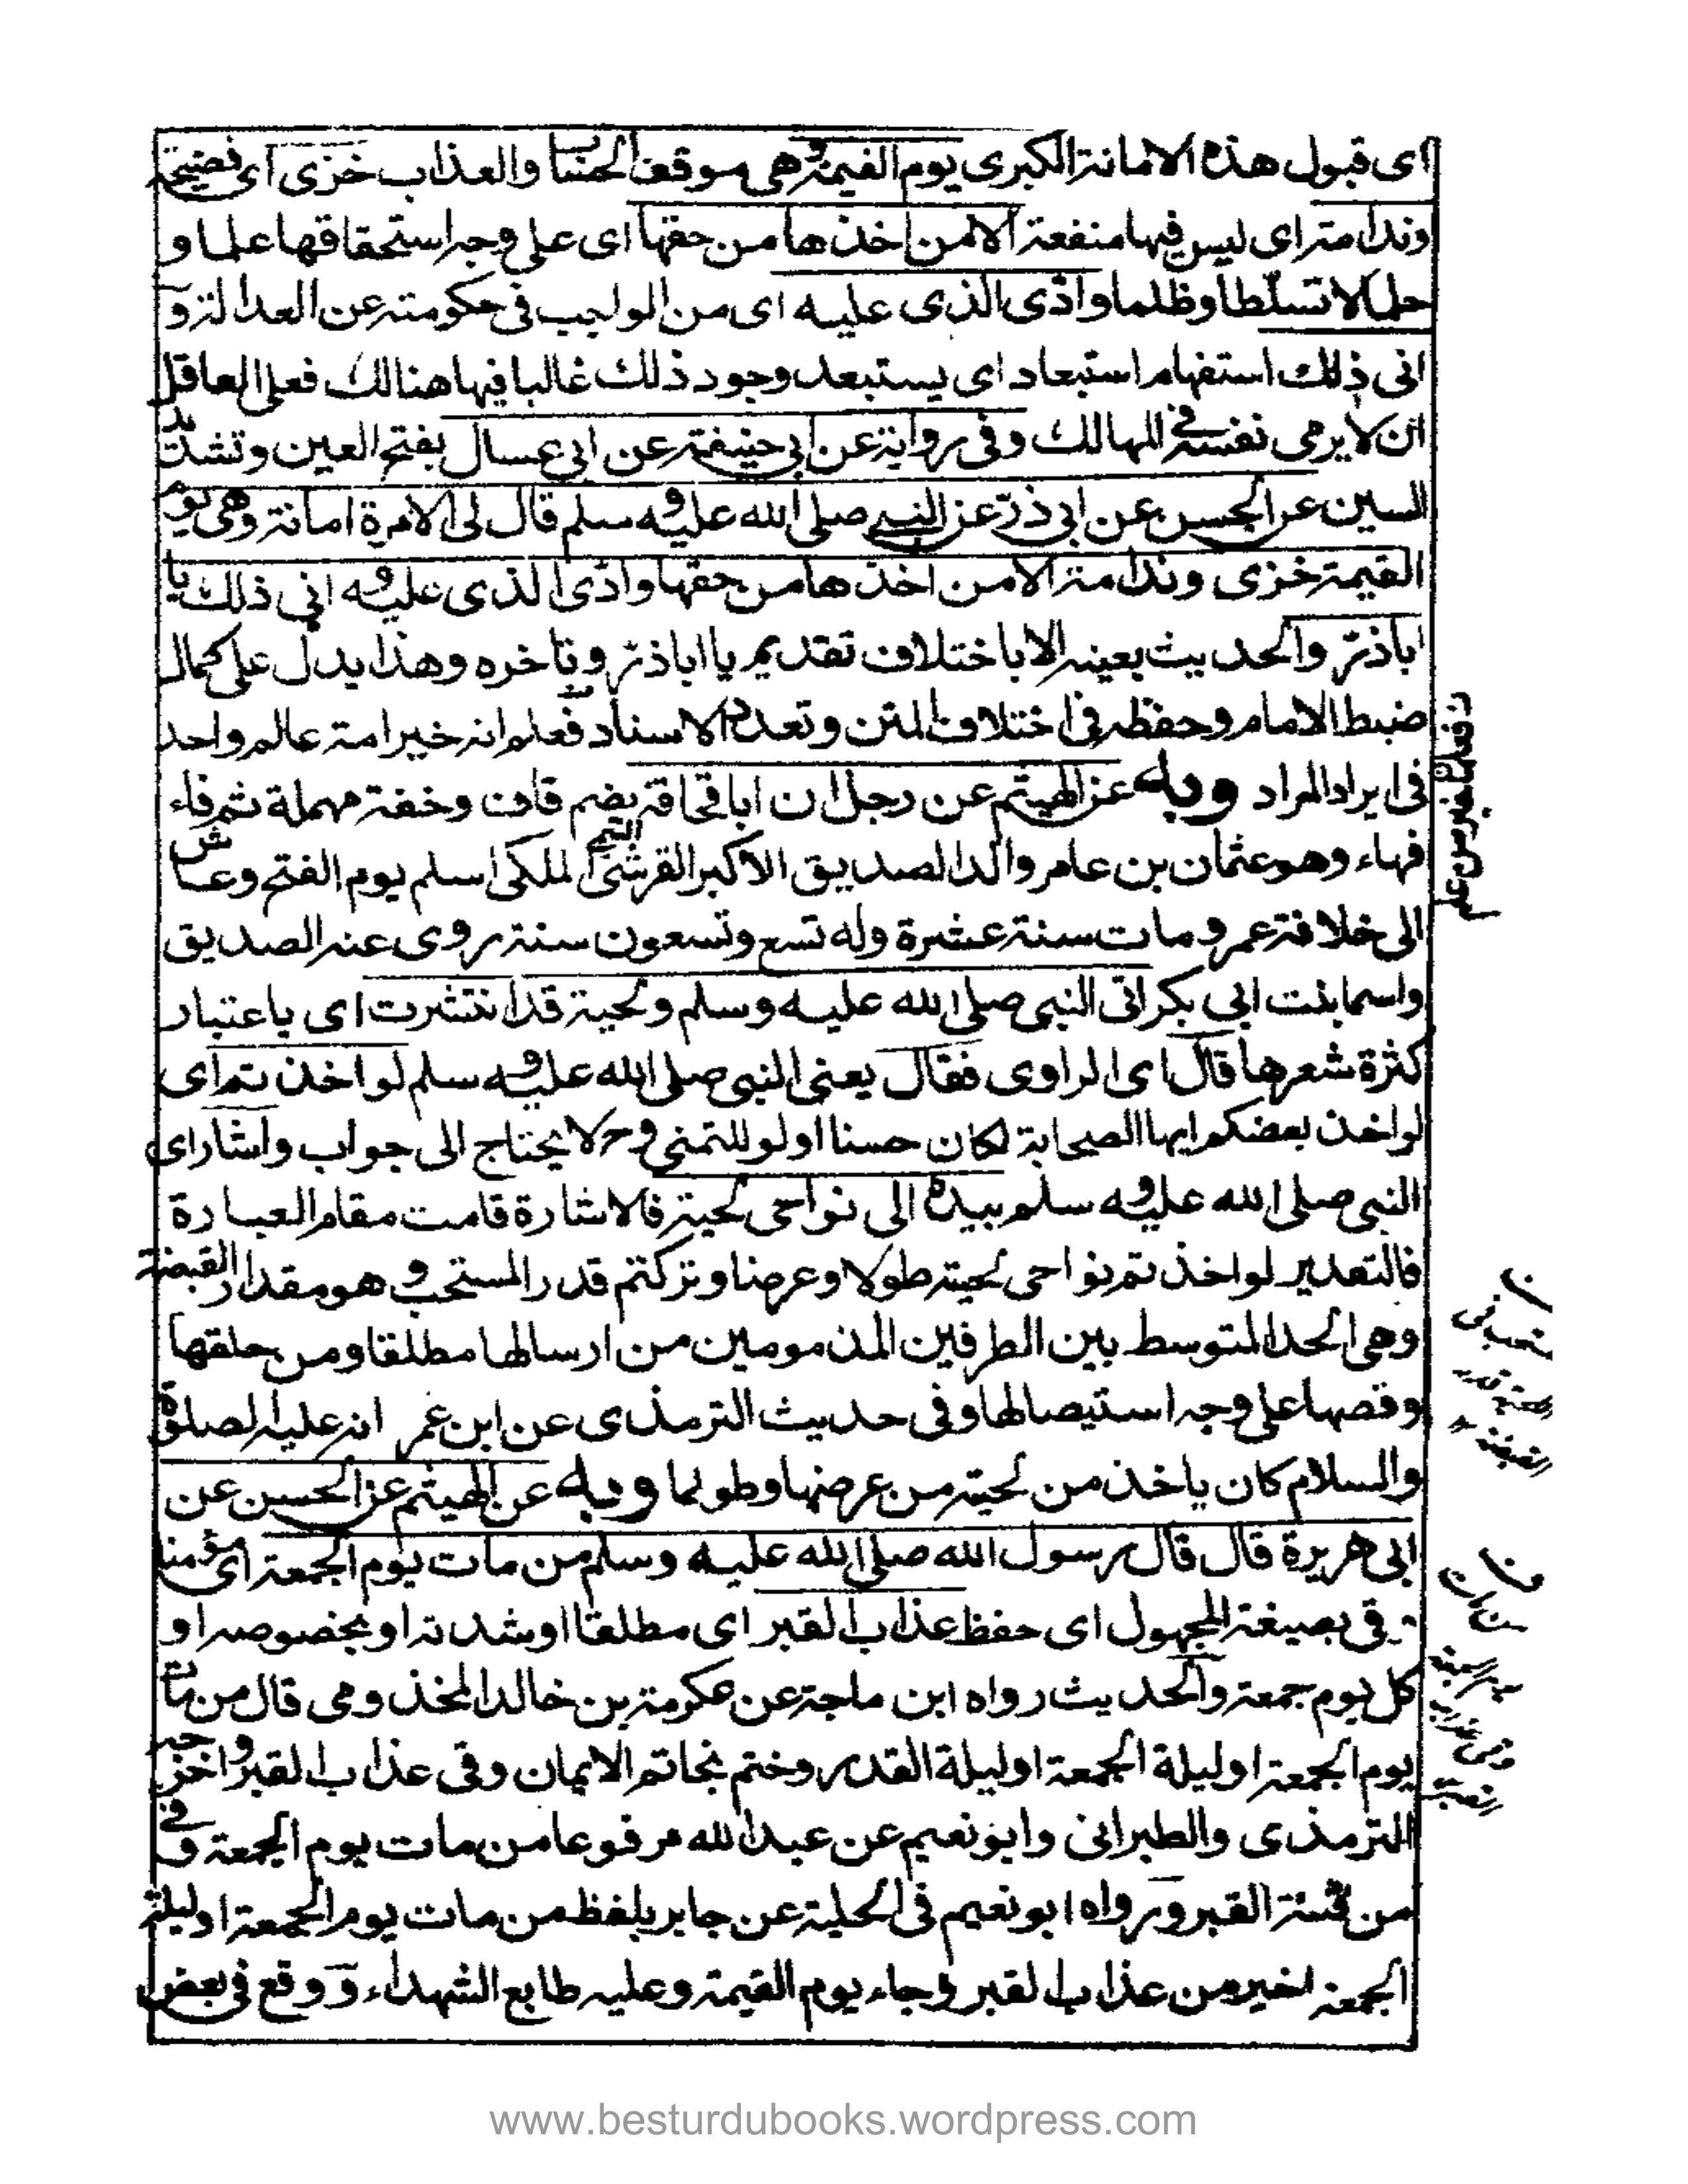 اى قبول هذه الامانة الكبرى يوم القيمة وهى موقف الحساب والعذاب خزى اى فضيحة
وندامة اى ليس فيها منفعة الا من اخذها من حقها اى على وجه استحقاقها علما و
حلما لا تسلطا وظلما وادى الذى عليه اى من الواجب فى حكومته عن العدالة و
انى ذلك استفهام استبعاد اى يستبعد وجود ذلك غالبا فيها هنالك فعلى العاقل
ان لا يرمى نفسه فى المهالك وفى رواية عن ابى حنيفة عن ابى عسال بفتح العين وتشديد
السين عن الحسن عن ابى ذر عن النبى صلى الله عليه وسلم قال لى الامرة امانة وهى يوم
القيمة خزى وندامة الا من اخذها من حقها وادى الذى عليه وانى ذلك يا
اباذر والحديث بعينه الا باختلاف تقديم يا اباذر وتاخره وهذا يدل على كمال
ضبط الامام وحفظه فى اختلاف المتن وتعدد الاسناد فعلم انه خير امة عالم واحد
فى ايراد المراد وبه عن الهيثم عن رجل ان اباقحافة بضم قاف وخفة مهملة ثم فاء
فهاء وهو عثمان بن عامر والد الصديق الاكبر القرشى التيمى المكى اسلم يوم الفتح وعاش
الى خلافة عمر ومات سنة عشرة وله تسع وتسعون سنة روى عنه الصديق
واسما بنت ابى بكر اتى النبى صلى الله عليه وسلم ولحيته قد انتشرت اى باعتبار
كثرة شعرها قال اى الراوى فقال يعنى النبى صلى الله عليه وسلم لو اخذتم اى
لو اخذ بعضكم ايها الصحابة لكان حسنا او لو للتمنى وح لا يحتاج الى جواب واشار اى
النبى صلى الله عليه وسلم بيده الى نواحى لحيته فالاشارة قامت مقام العبارة
فالتقدير لو اخذتم نواحى لحيته طولا وعرضا وتركتم قدر المستحب وهو مقدار القبضة
وهى الحد المتوسط بين الطرفين المذمومين من ارسالها مطلقا ومن حلقها
وقصها على وجه استيصالها وفى حديث الترمذى عن ابن عمر انه عليه الصلوة
والسلام كان ياخذ من لحيته من عرضها وطولها وبه عن الهيثم عن الحسن عن
ابى هريرة قال قال رسول الله صلى الله عليه وسلم من مات يوم الجمعة اى مؤمنا
وقى بصيغة المجهول اى حفظ عذاب القبر اى مطلقا او شدته او بخصوصه او
كل يوم جمعة والحديث رواه ابن ماجة عن عكرمة بن خالد المخذومى قال من مات
يوم الجمعة او ليلة الجمعة او ليلة القدر وختم بخاتم الايمان وقى عذاب القبر واخرج
الترمذى والطبرانى وابونعيم عن عبد الله مرفوعا من مات يوم الجمعة وقى
من فتنة القبر ورواه ابونعيم فى الحلية عن جابر بلفظ من مات يوم الجمعة او ليلة
الجمعة اخير من عذاب القبر وجاء يوم القيمة وعليه طابع الشهداء ووقع فى بعض
www.besturdubooks.wordpress.com